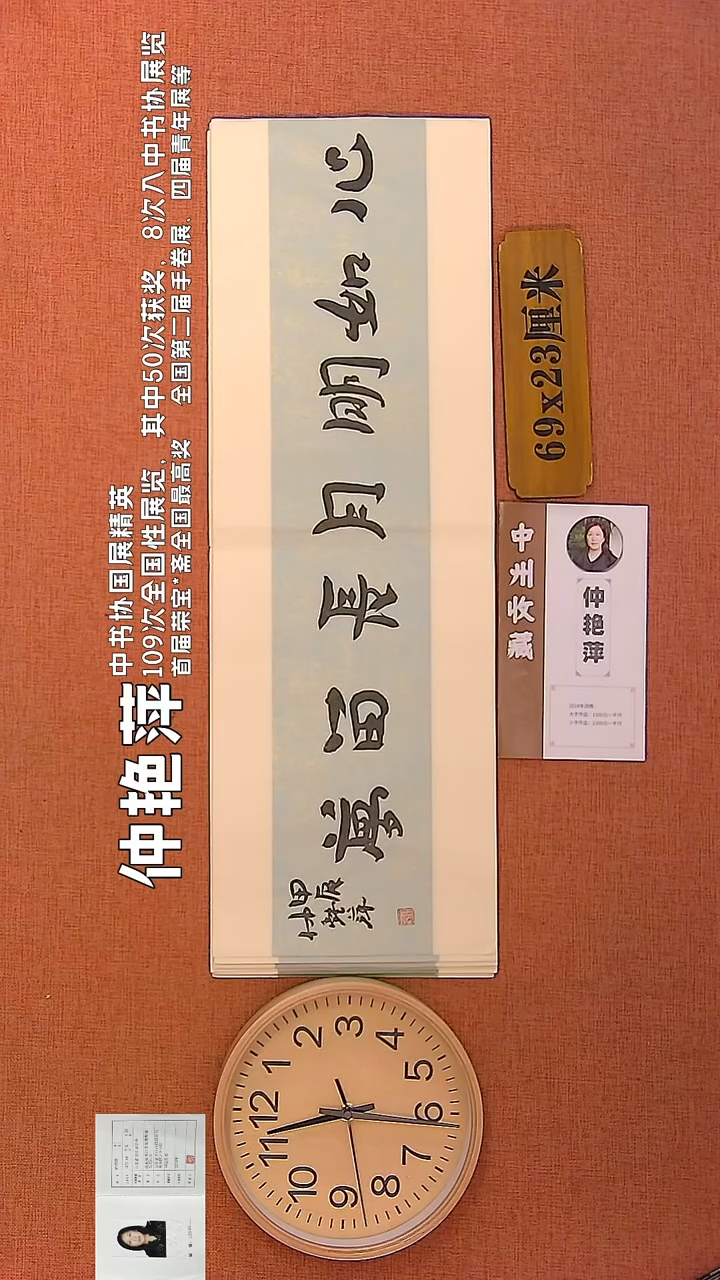 仲艳萍
中书协国展精英
109次全国性展览，其中50次获奖，8次入中书协展览
首届荣宝*斋全国最高奖 全国第二届手卷展、四届青年展等
心如明月長留夢
甲辰
仲艳萍
69x23厘米
仲艳萍
12
1
2
3
4
5
6
7
8
9
10
11